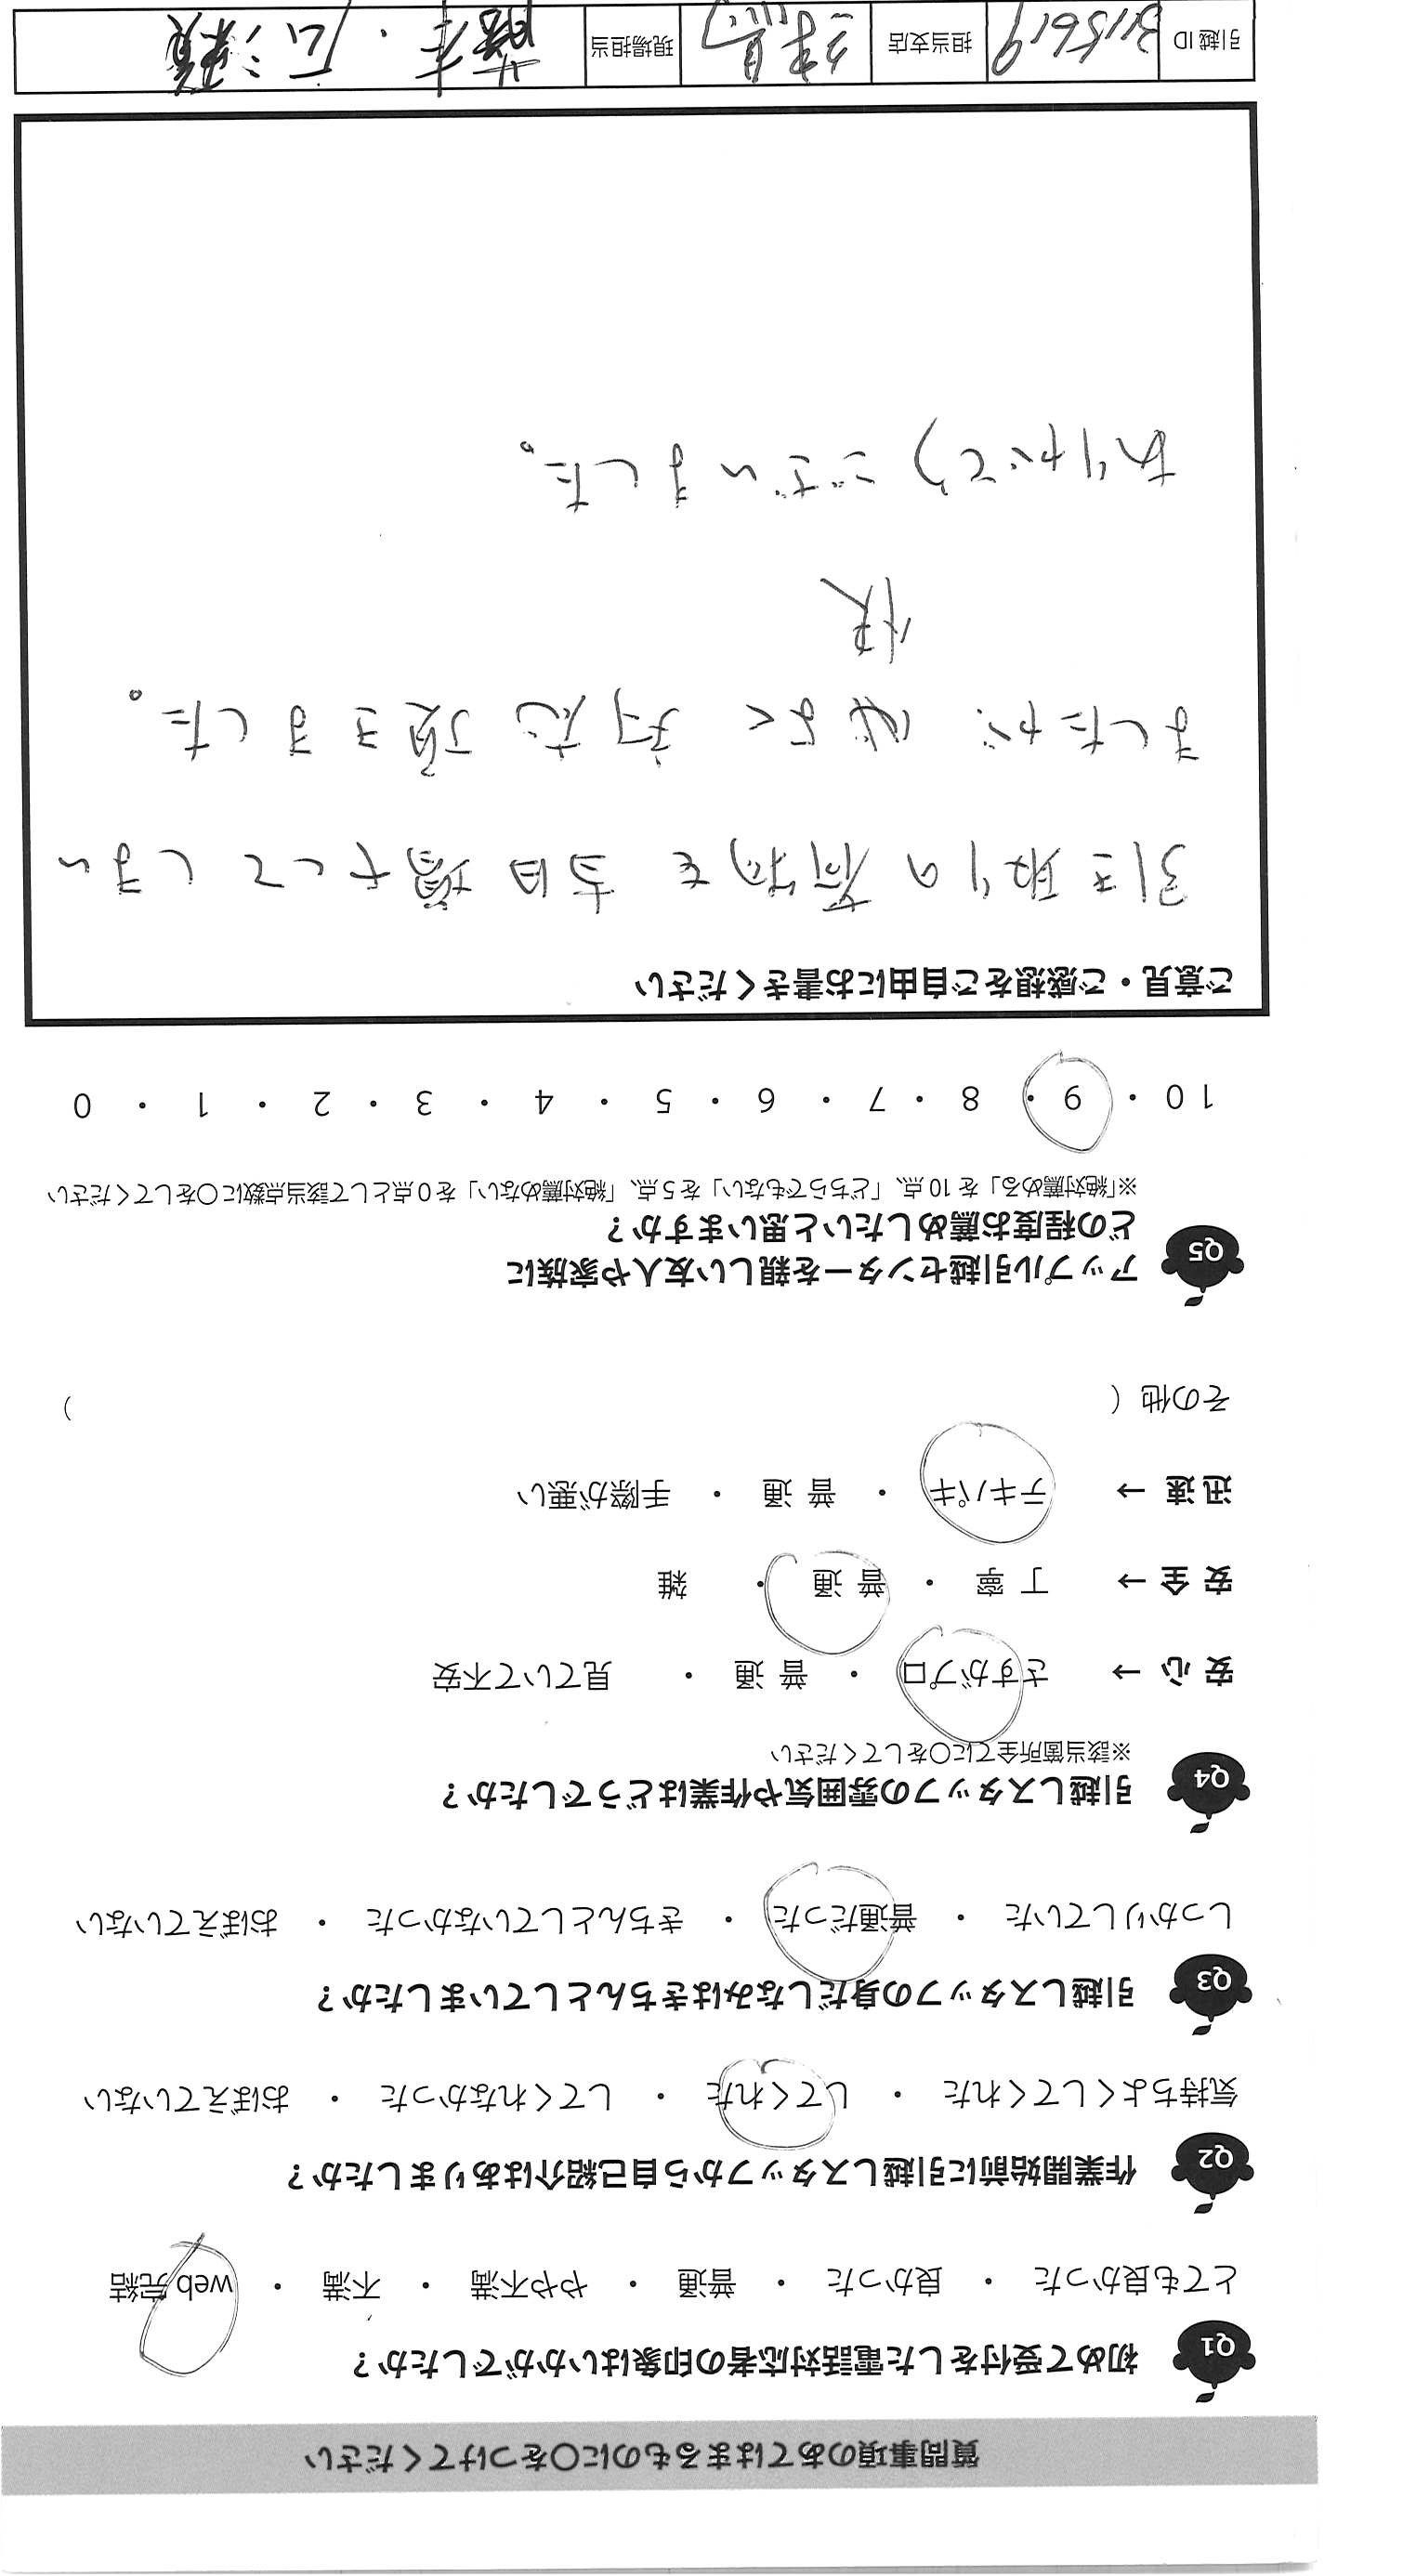 質問事項のあてはまるものに○をつけてください
Q1 初めて受付をした電話対応者の印象はいかがでしたか？
とても良かった ・ 良かった ・ 普通 ・ やや不満 ・ 不満 ・ web完結
Q2 作業開始前に引越しスタッフから自己紹介はありましたか？
気持ちよくしてくれた ・ してくれた ・ してくれなかった ・ おぼえていない
Q3 引越しスタッフの身だしなみはきちんとしていましたか？
しっかりしていた ・ 普通だった ・ きちんとしていなかった ・ おぼえていない
Q4 引越しスタッフの雰囲気や作業はどうでしたか？
※該当箇所全てに○をしてください
安心 → さすがプロ ・ 普通 ・ 見ていて不安
安全 → 丁寧 ・ 普通 ・ 雑
迅速 → テキパキ ・ 普通 ・ 手際が悪い
その他（ ）
Q5 アップル引越センターを親しい友人や家族に
どの程度お薦めしたいと思いますか？
※「絶対薦める」を10点、「どちらでもない」を5点、「絶対薦めない」を0点として該当点数に○をしてください
10 ・ 9 ・ 8 ・ 7 ・ 6 ・ 5 ・ 4 ・ 3 ・ 2 ・ 1 ・ 0
ご意見・ご感想をご自由にお書きください
引き取りの荷物を当日増やしてしまい
ましたが よく対応頂きました。
快
ありがとうございました。
引越ID 3115619 担当支店 練馬 現場担当 藤本・広瀬